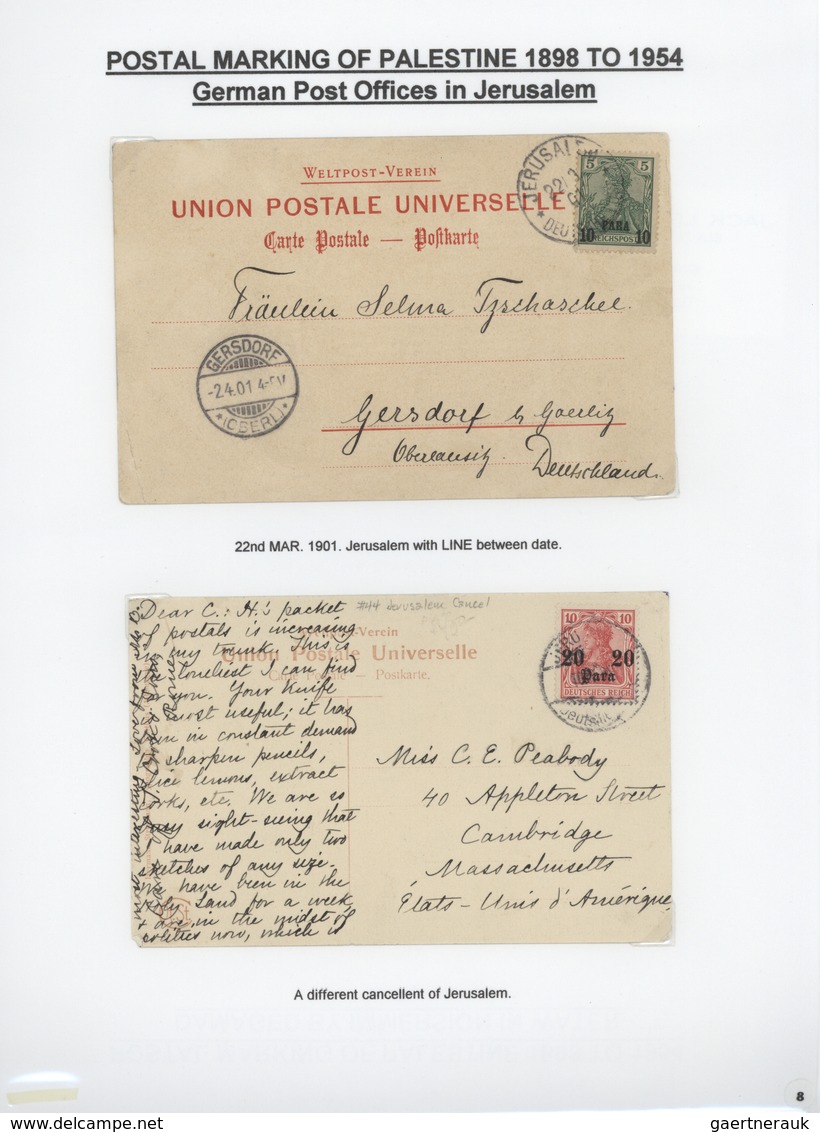 POSTAL MARKING OF PALESTINE 1898 TO 1954
German Post Offices in Jerusalem
WELTPOST-VEREIN
UNION POSTALE UNIVERSELLE
Carte Postale — Postkarte
JERUSALE
22/3
DEU
5 5
PARA
10 REICHSPOST 10
Fräulein Selma Tzschaschel.
GERSDORF
-2.4.01 4-5V
* (OBERL) *
Gersdorf b/ Goerlitz
Oberlausitz. Deutschland.
22nd MAR. 1901. Jerusalem with LINE between date.
#44 Jerusalem Cancel
Dear C.: H.'s packet
of postals is increasing
in my trunk. This is
the loneliest I can find
for you. Your knife
is most useful; it has
been in constant demand
to sharpen pencils,
slice lemons, extract
corks, etc. We are so
busy sight-seeing that
I have made only two
sketches of any size.
We have been in the
Holy Land for a week,
& are in the midst of
colitics now, which is
most interesting. Love from
Weltpost-Verein
Union Postale Universelle
Carte Postale — Postkarte.
10 10
20 20
Para
DEUTSCHES REICH
JERU
Deutsche
Miss C. E. Peabody
40 Appleton Street
Cambridge
Massachusetts
États-Unis d'Amérique,
A different cancellent of Jerusalem.
8
delcampe.net
gaertnerauk